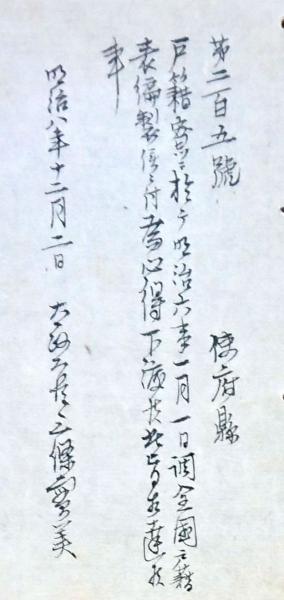 第二百五號
使府縣
戸籍寮ニ於テ明治六年一月一日調全國戸籍
表編製候ニ付為心得下渡候條此旨相達候
事
明治八年十二月二日 太政大臣三條實美